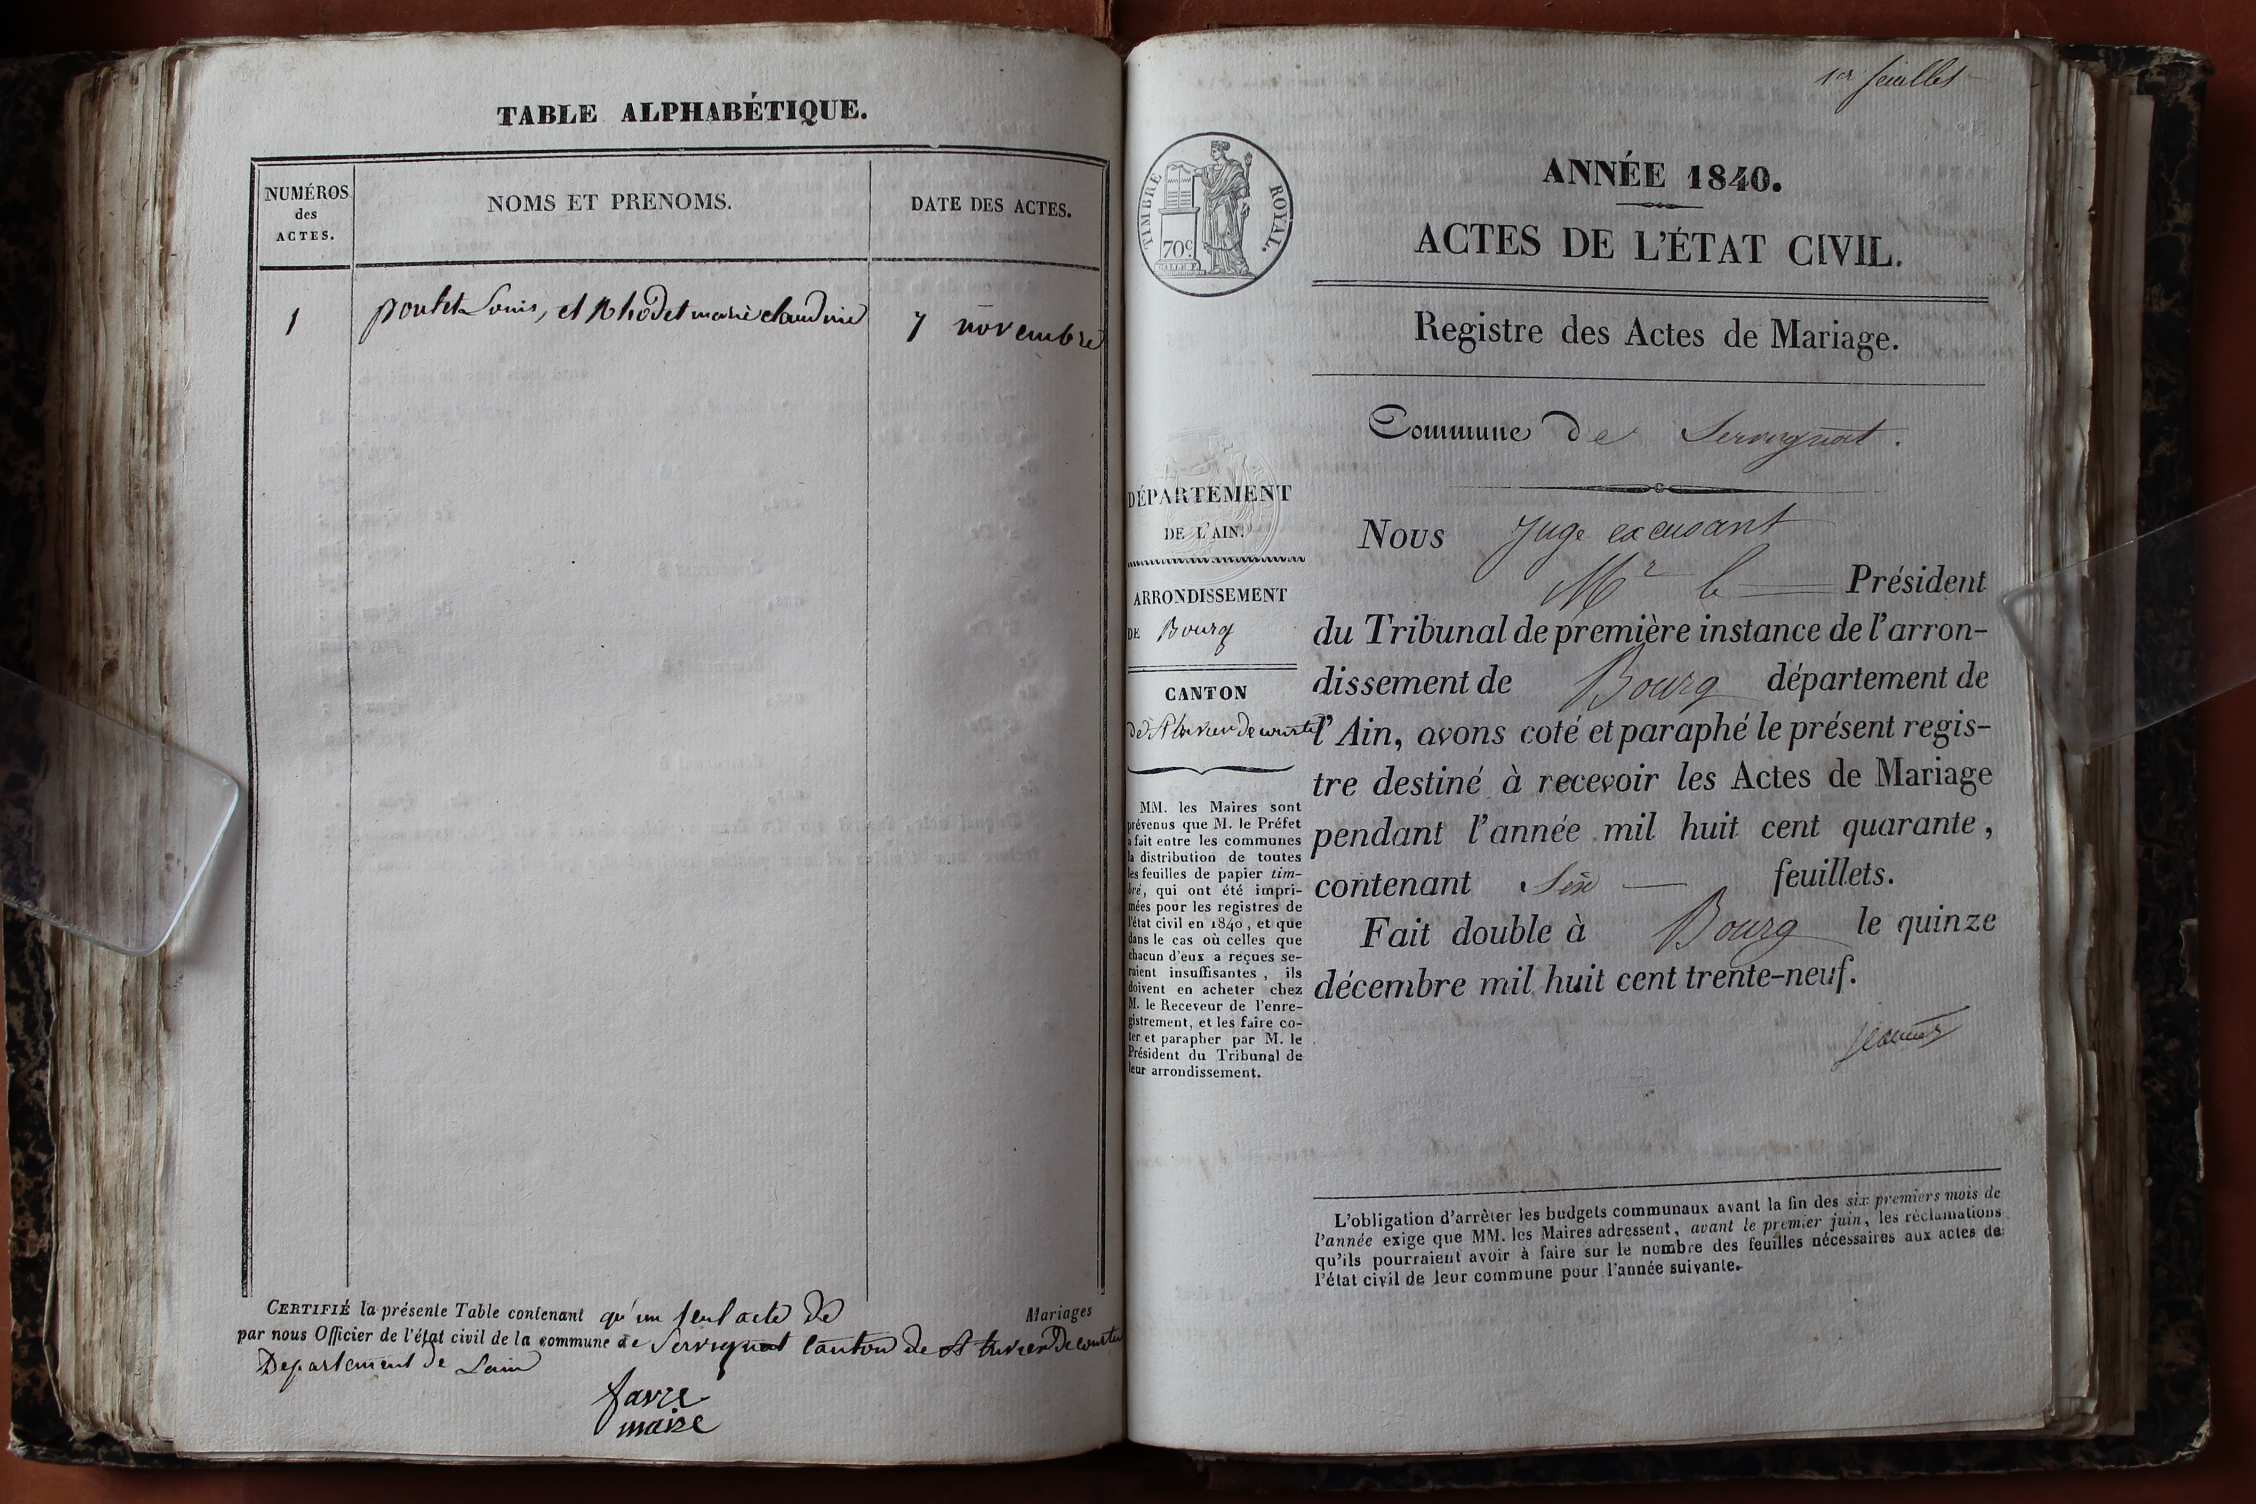 TABLE ALPHABÉTIQUE.
NUMÉROS
des
ACTES.
NOMS ET PRENOMS.
DATE DES ACTES.
1 poulet Louis, et Rhodet marie claudine 7 novembre
CERTIFIÉ la présente Table contenant qu'un seul acte de Mariages
par nous Officier de l'état civil de la commune de Servignat Canton de St trivier De courtes
Departement de Lain
favre
maire
1er feuillet
TIMBRE ROYAL.
70c
ANNÉE 1840.
ACTES DE L'ÉTAT CIVIL.
Registre des Actes de Mariage.
Commune de Servignat.
DÉPARTEMENT
DE L'AIN.
ARRONDISSEMENT
DE Bourg
CANTON
de St trivier de courtes
MM. les Maires sont
prévenus que M. le Préfet
a fait entre les communes
la distribution de toutes
les feuilles de papier tim-
bré, qui ont été impri-
mées pour les registres de
l'état civil en 1840, et que
dans le cas où celles que
chacun d'eux a reçues se-
raient insuffisantes, ils
doivent en acheter chez
M. le Receveur de l'enre-
gistrement, et les faire co-
ter et parapher par M. le
Président du Tribunal de
leur arrondissement.
Nous Juge excusant
Mr le Président
du Tribunal de première instance de l'arron-
dissement de Bourg département de
l'Ain, avons coté et paraphé le présent regis-
tre destiné à recevoir les Actes de Mariage
pendant l'année mil huit cent quarante,
contenant Six feuillets.
Fait double à Bourg le quinze
décembre mil huit cent trente-neuf.
L'obligation d'arrêter les budgets communaux avant la fin des six premiers mois de
l'année exige que MM. les Maires adressent, avant le premier juin, les réclamations
qu'ils pourraient avoir à faire sur le nombre des feuilles nécessaires aux actes de
l'état civil de leur commune pour l'année suivante.